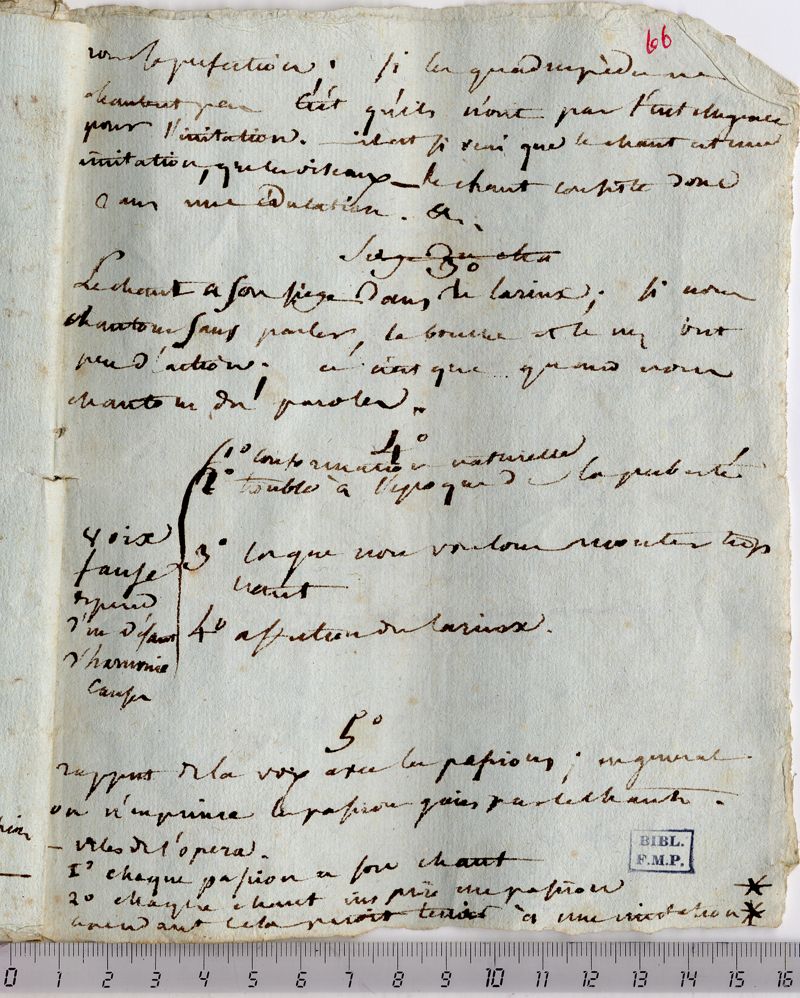 66
la perfection; si les quadrupedes ne
chantent pas c'est qu'ils n'ont pas l'intelligence
pour l'imitation. il est si vrai que le chant est une
imitation, que les oiseaux — le chant consiste donc
dans une éducation. &..
Siege du cha
3°
Le chant a son siege dans le larinx; si nous
chantons sans parler, la bouche et le nez ont
peu d'action; ce n'est que quand nous
chantons des paroles.
4°
1° conformation naturelle
2° troublé à l'epoque de la puberté
voix
fause
depend
d'un défaut
d'harmonie
causes
3° lorsque nous voulons monter trop
haut
4° affection du larinx.
5°
rapport de la voix avec les passions; en general
on n'exprime les passions gaies par le chant.
de l'opera.
1° chaque passion a son chant
2° chaque chant inspire une passion
cependant cela paroit tenir à une imitation
BIBL.
F.M.P.
0 1 2 3 4 5 6 7 8 9 10 11 12 13 14 15 16